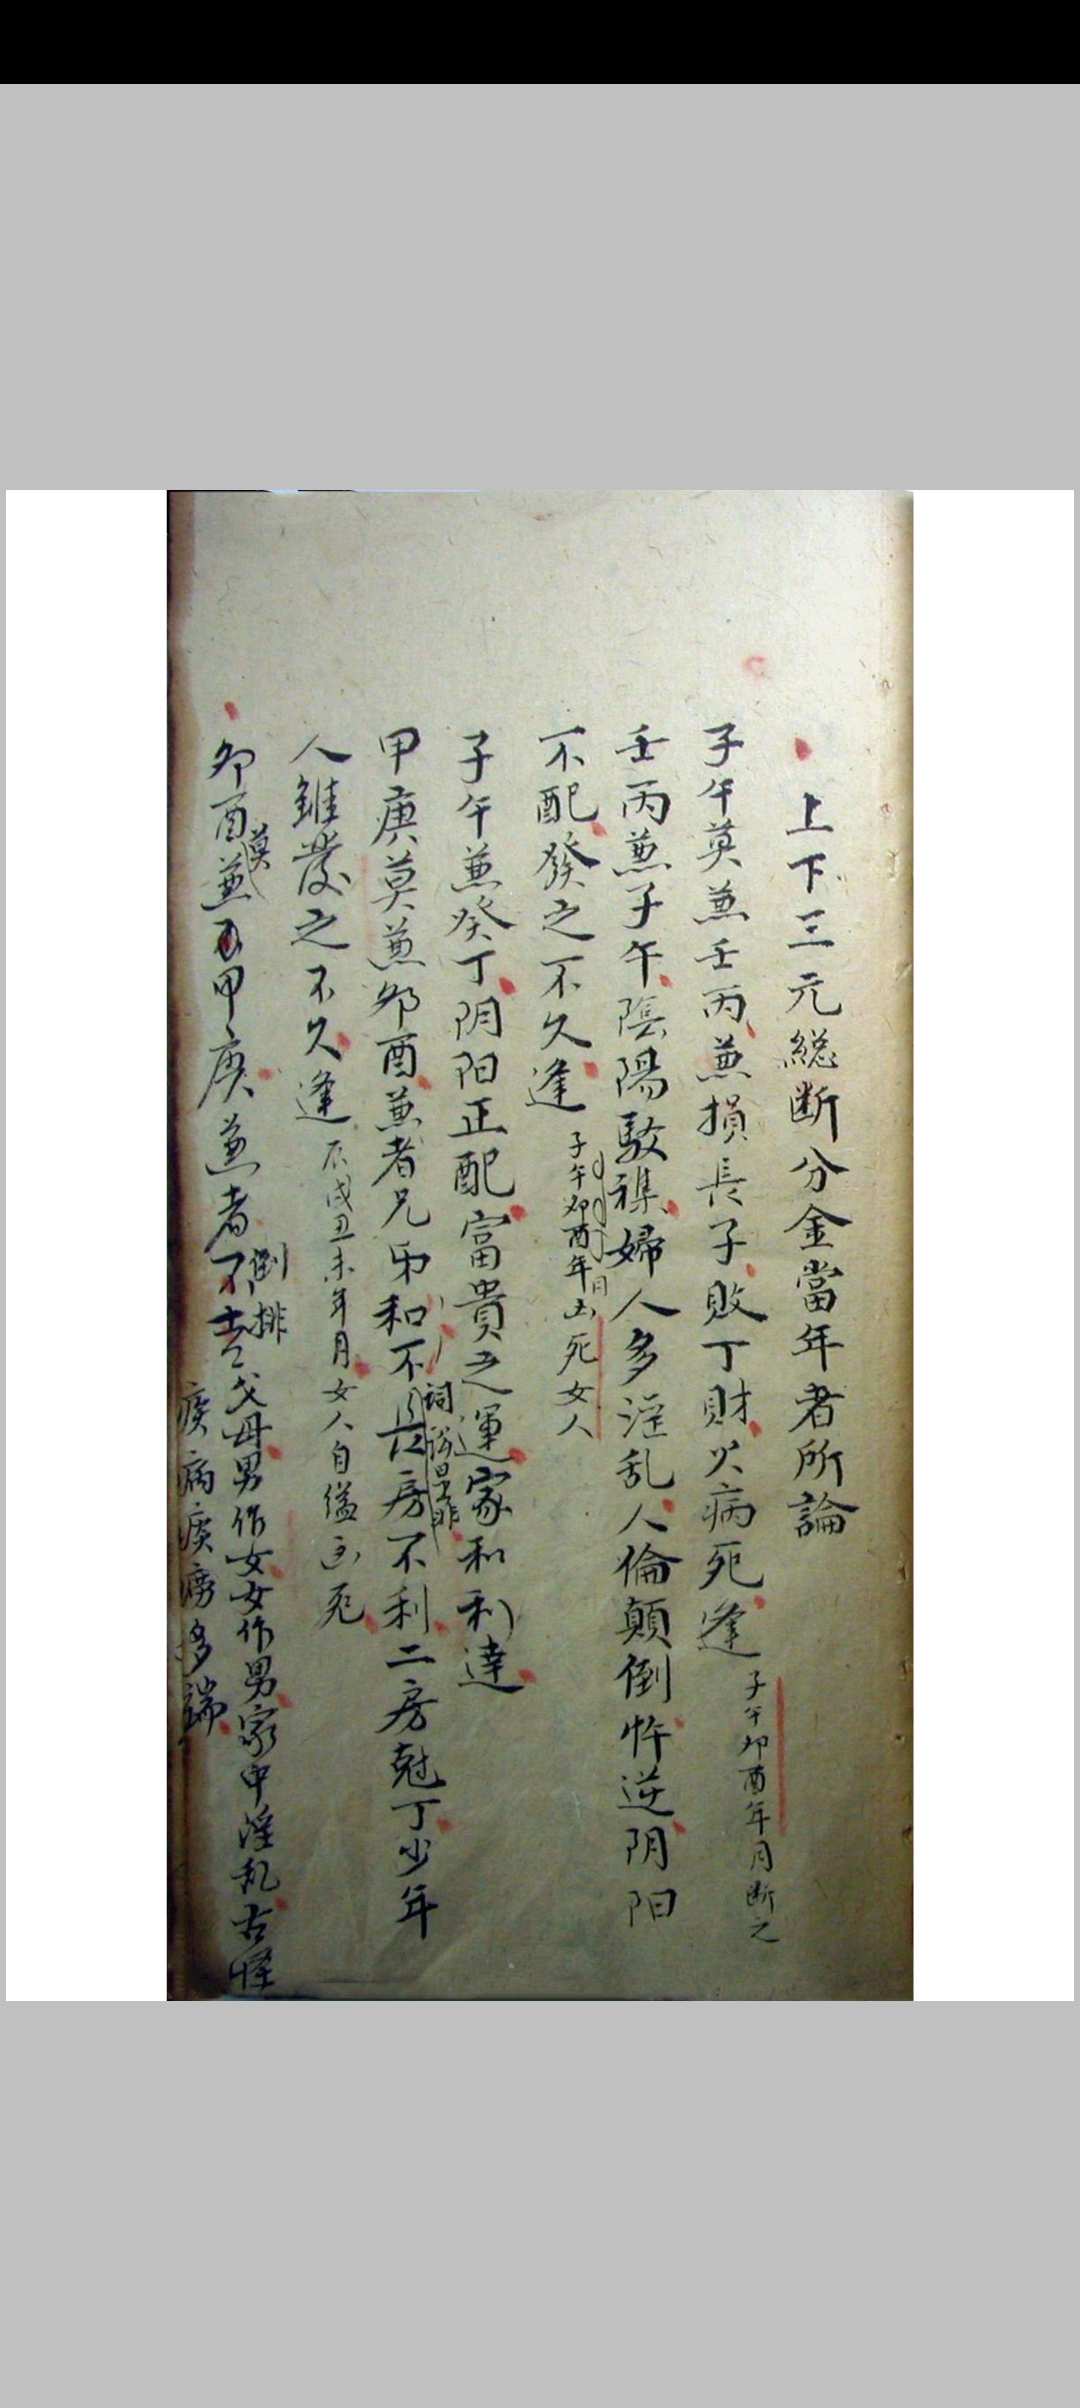 上下三元総断分金當年者所論
子午莫兼壬丙兼損長子敗丁財火病死逢 子午卯酉年月断之
壬丙兼子午陰陽駁雜婦人多淫乱人倫顛倒忤逆阴阳
不配發之不久逢 子午卯酉年日凶死女人
子午兼癸丁阴阳正配富貴之運家和利達
甲庚莫兼卯酉兼者兄弟和不長房不利二房尅丁少年
詞訟是非
人雖發之不久逢 辰戌丑未年月女人自縊凶死
卯酉莫兼甲庚兼者不吉父母男作女女作男家中淫乱古怪
倒排
病多端